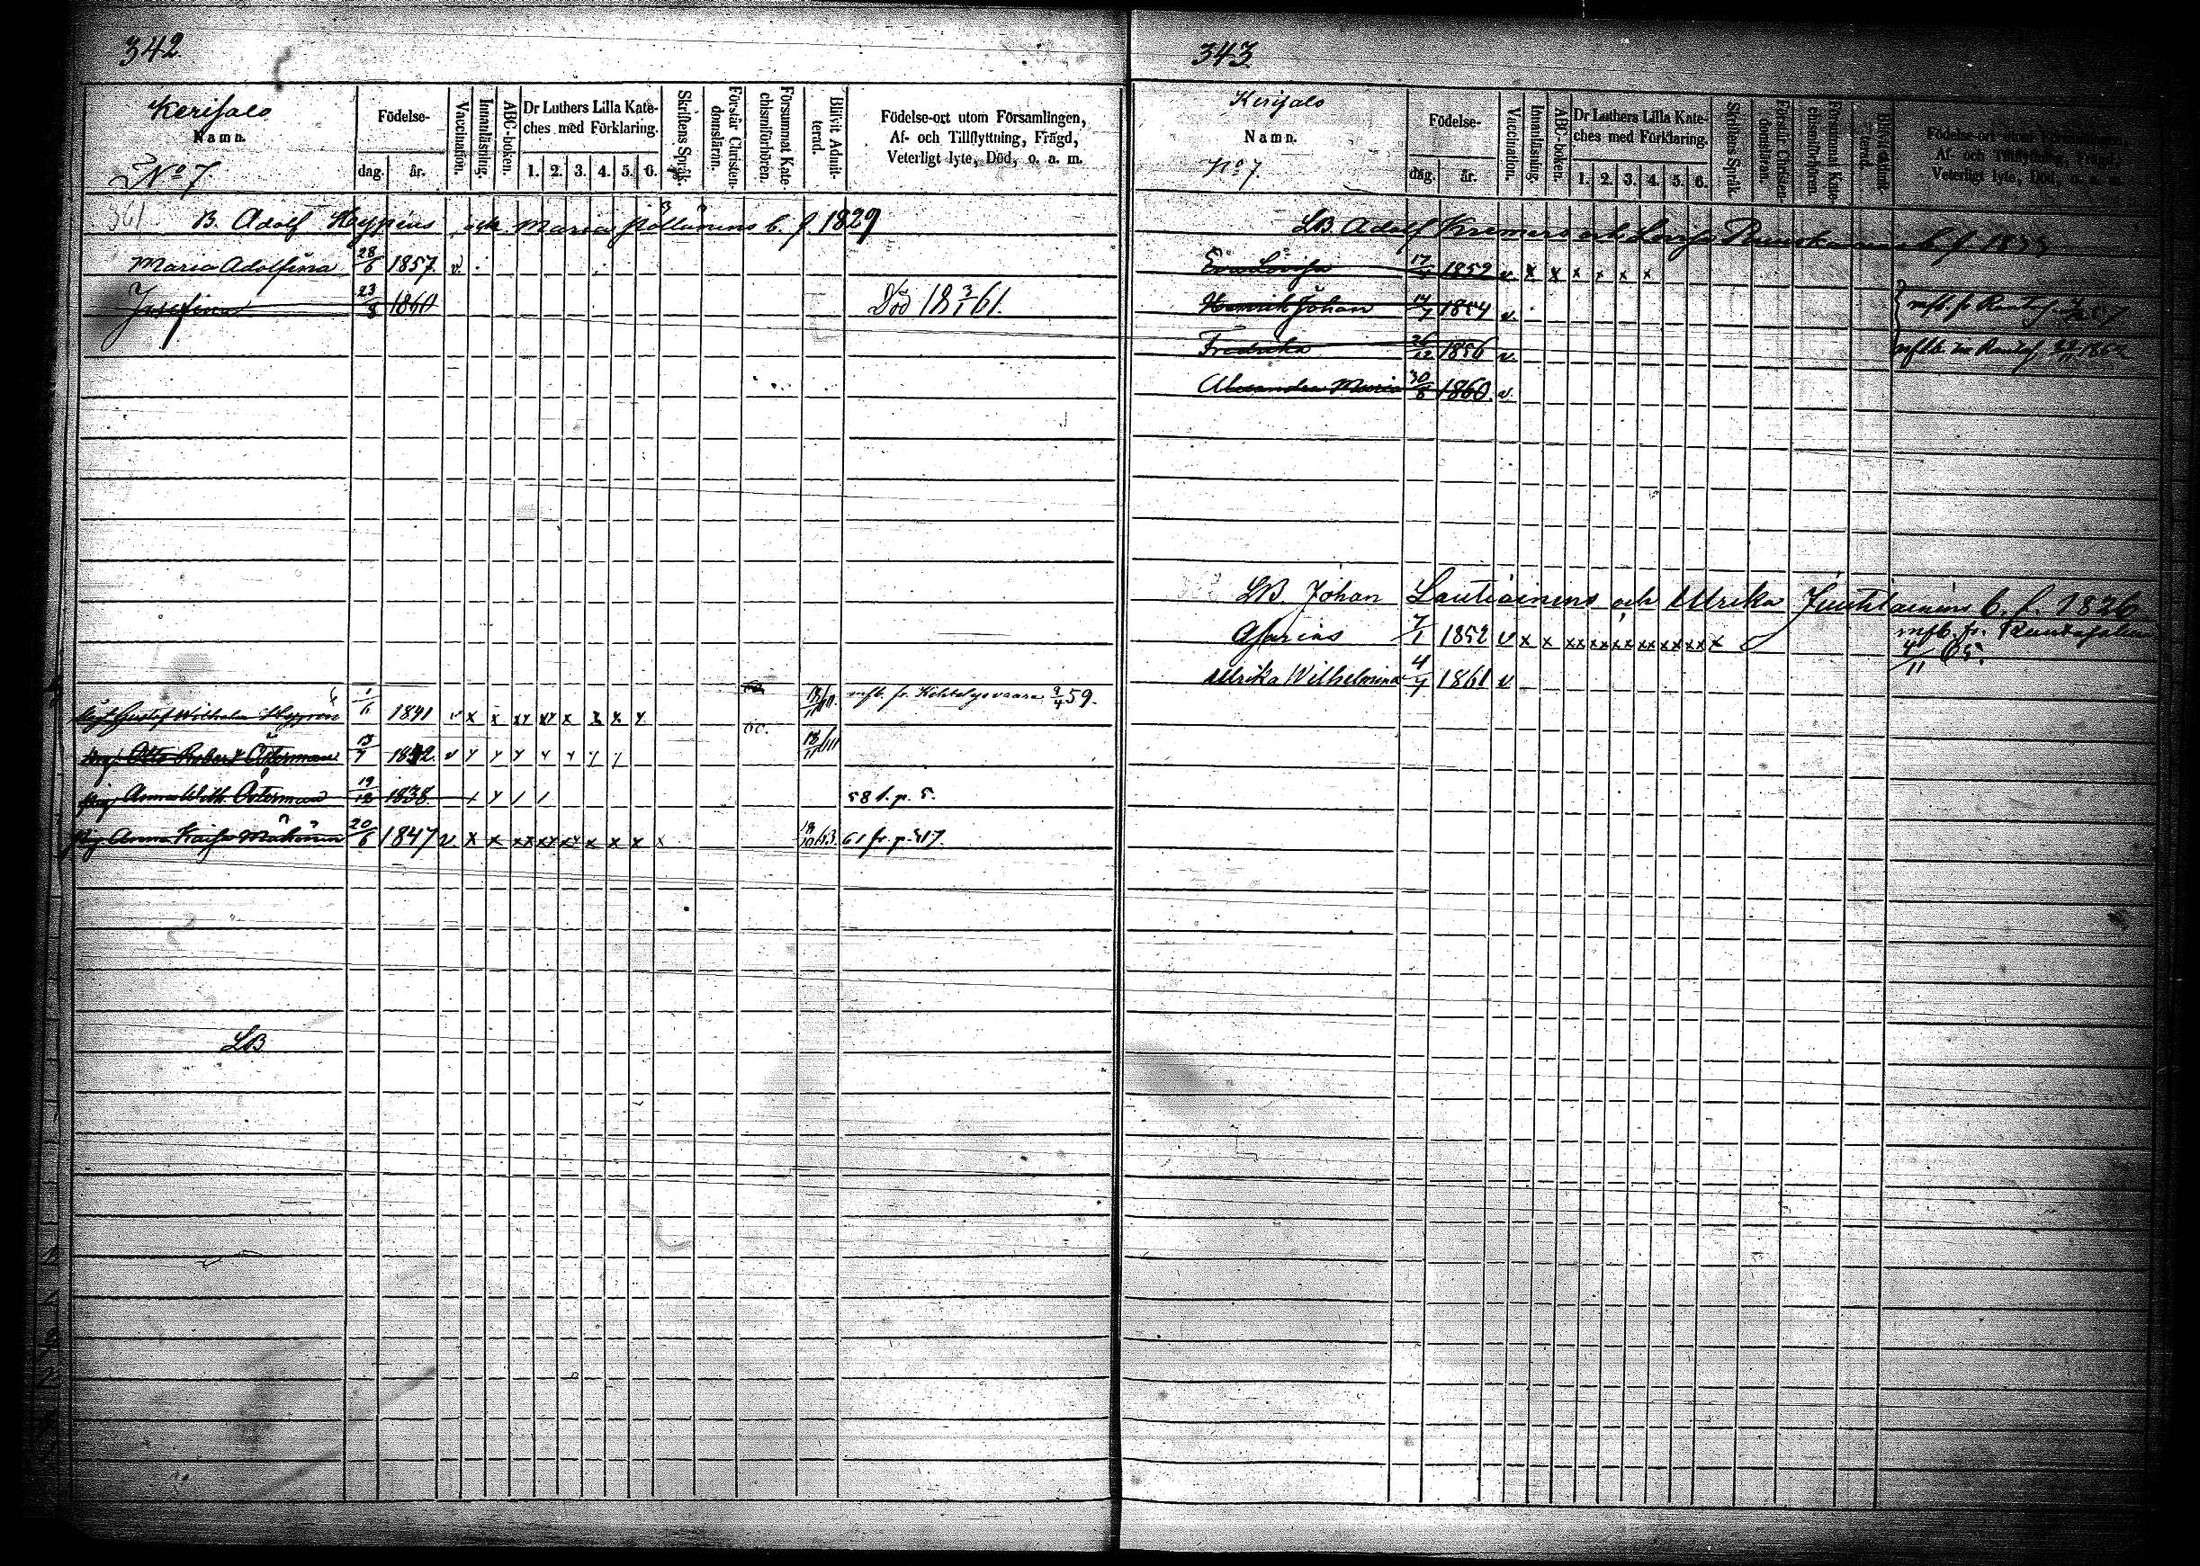 342
Kerisalo
Namn.
No 7.
Födelse-
dag. år.
Vaccination.
Innanläsning.
ABC-boken.
Dr Luthers Lilla Kate-
ches med Förklaring.
1. 2. 3. 4. 5. 6.
Skriftens Språk.
Förstår Christen-
domsläran.
Försummat Kate-
chismiförhören.
Blifvit Admit-
terad.
Födelse-ort utom Församlingen,
Af- och Tillflyttning, Frägd,
Veterligt lyte, Död, o. a. m.
361 B. Adolf Hyppens och Maria Pöllänens b. f. 1829
Maria Adolfina 28/6 1857 v
Josefina 23/8 1860 Död 18 3/1 61.
Gustaf Wilhelm 1/11 1841 v x x xx xx x x x x mfb. fr. Kihtelysvaara 9/4 59.
Otto Robert Österman 13/7 1842 v
Anna Wilh. Österman 19/12 1838 58 f. p. 5.
Anna Kaisa 20/6 1847 v x x xx xx xx x x x x 61 fr p. 417.
LB
343
Kerisalo
Namn.
No 7.
Födelse-
dag. år.
Vaccination.
Innanläsning.
ABC-boken.
Dr Luthers Lilla Kate-
ches med Förklaring.
1. 2. 3. 4. 5. 6.
Skriftens Språk.
Förstår Christen-
domsläran.
Försummat Kate-
chismiförhören.
Blifvit Admit-
terad.
Födelse-ort utom Församlingen,
Af- och Tillflyttning, Frägd,
Veterligt lyte, Död, o. a. m.
LB. Adolf och Lovisa b. f. 1833
Eva Lovisa 1852 v x x x x x x
Henrik Johan 1854 v
Fredrika 26/12 1856 v
Alexandra Maria 30/8 1860 v
LB. Johan Lautiainens och Ulrika Juutilainens b. f. 1826
Asarias 7/1 1852 v x x xx xx xx xx xx xx x mfb. fr.
4/11 65.
Ulrika Wilhelmina 4/4 1861 v